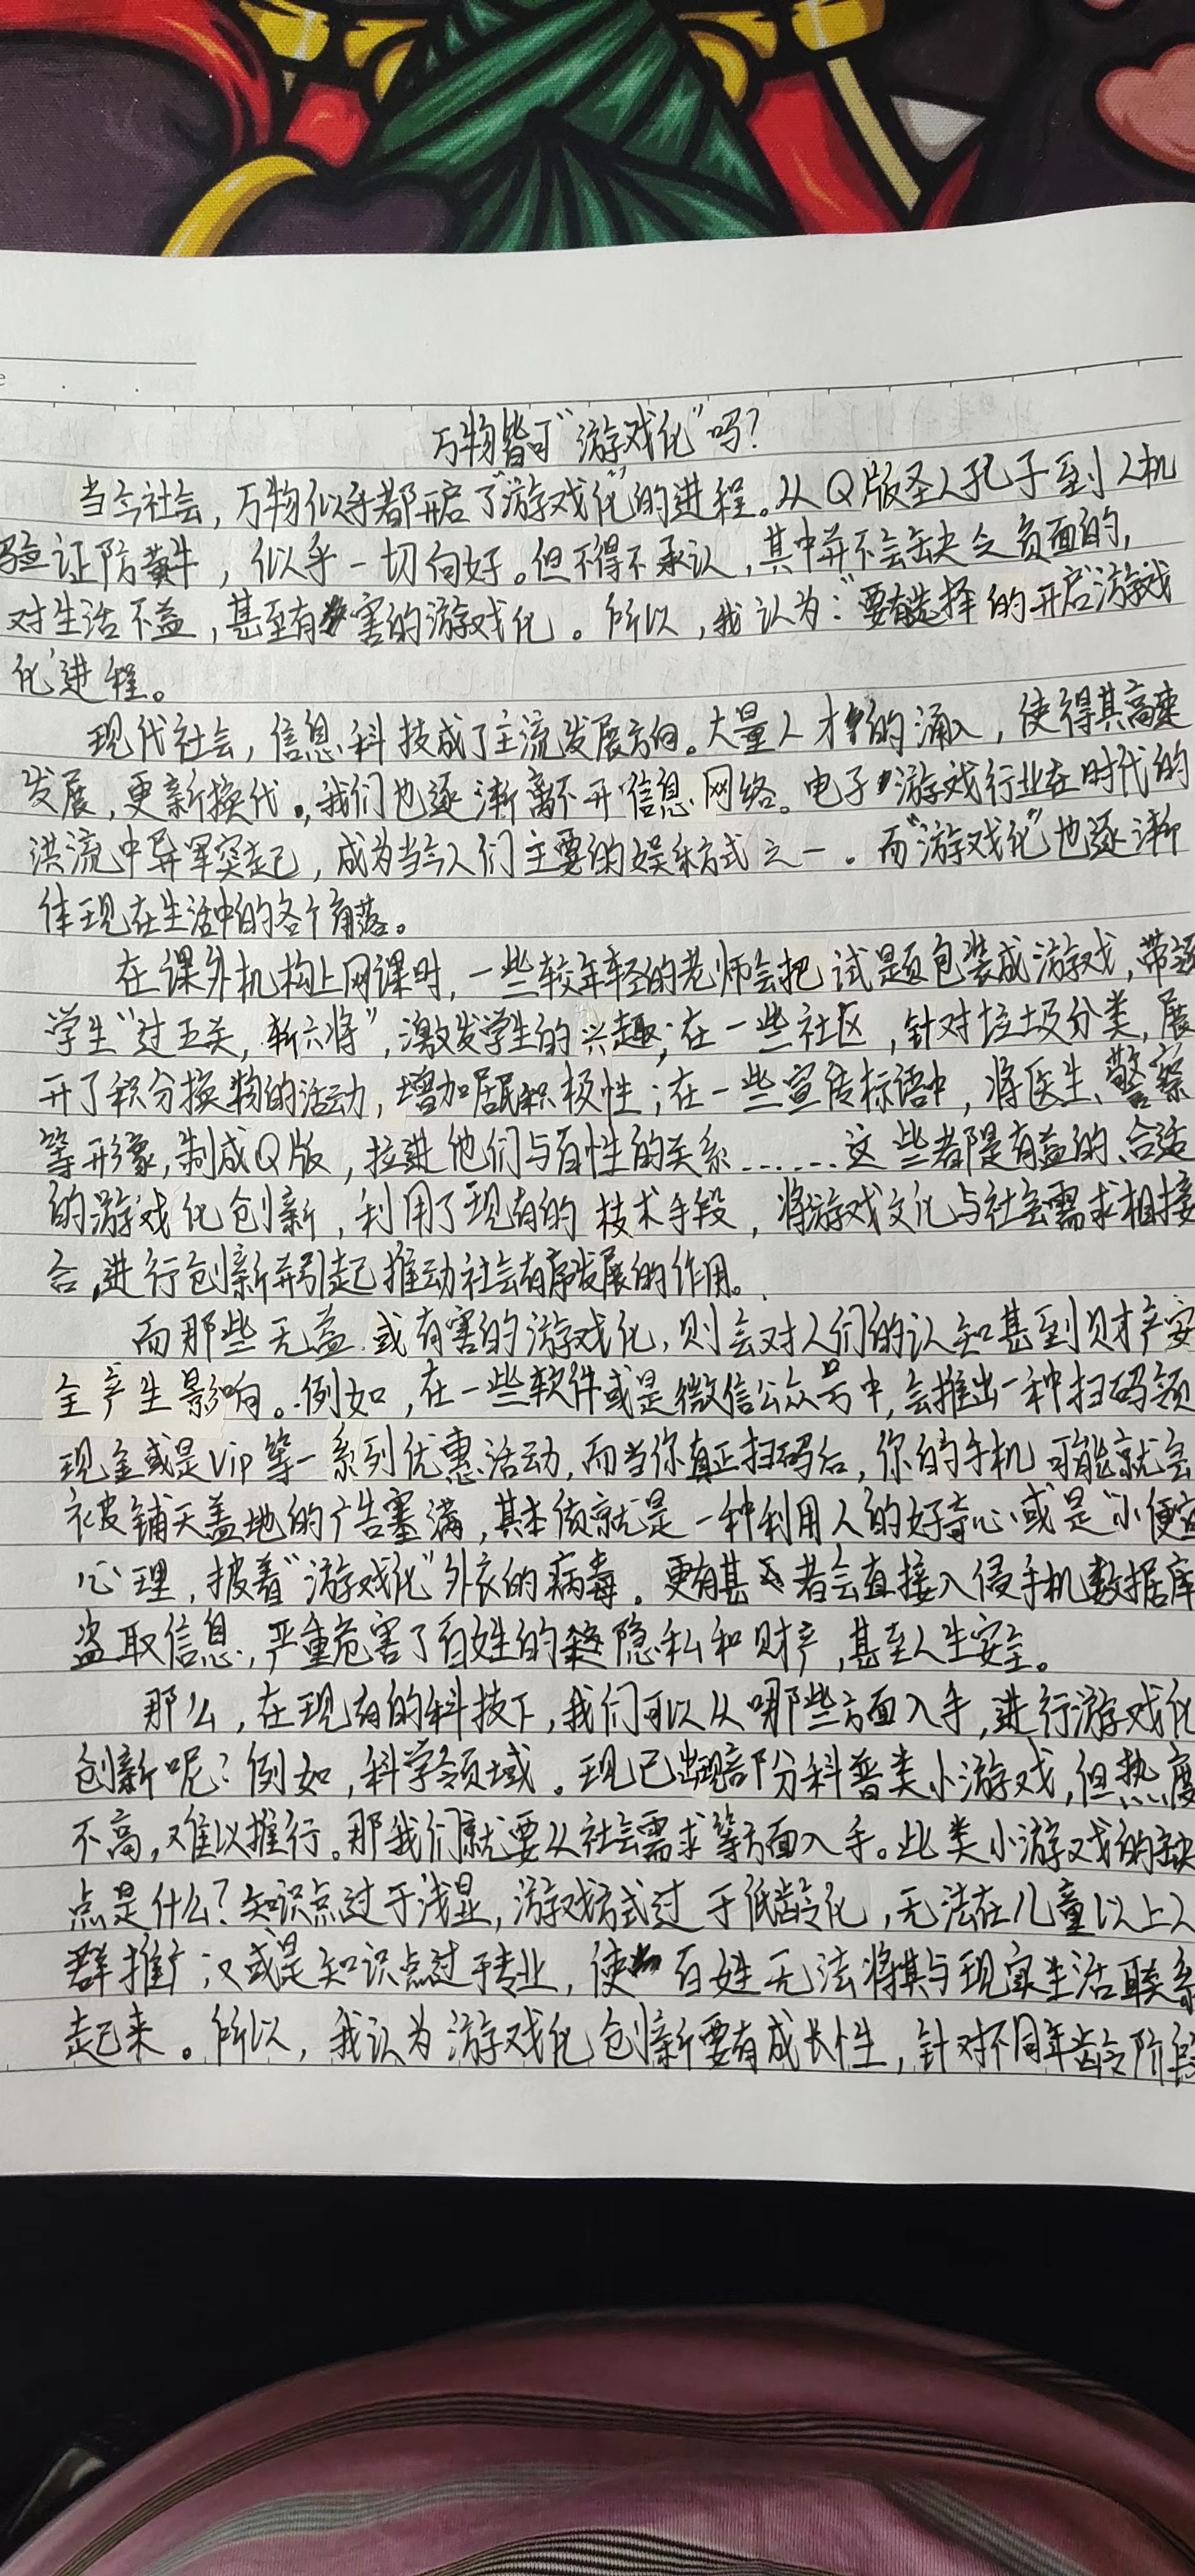 万物皆可“游戏化”吗?
当今社会,万物似乎都开启了“游戏化”的进程。从Q版圣人孔子到人机
验证防黄牛,似乎一切向好。但不得不承认,其中并不会缺少负面的,
对生活不益,甚至有害的游戏化。所以,我认为:“要有选择的开启‘游戏
化’进程。
现代社会,信息科技成了主流发展方向。大量人才的涌入,使得其高速
发展,更新换代。我们也逐渐离不开信息网络。电子游戏行业在时代的
洪流中异军突起,成为当今人们主要的娱乐方式之一。而“游戏化”也逐渐
体现在生活中的各个角落。
在课外机构上网课时,一些较年轻的老师会把试题包装成游戏,带逐
学生“过五关,斩六将”,激发学生的兴趣;在一些社区,针对垃圾分类,展
开了积分换物的活动,增加居民积极性;在一些宣传标语中,将医生、警察
等形象,制成Q版,拉进他们与百姓的关系......这些都是有益的、合适
的游戏化创新,利用了现有的技术手段,将游戏文化与社会需求相接
合,进行创新并引起推动社会有序发展的作用。
而那些无益或有害的游戏化,则会对人们的认知甚到财产安
全产生影响。例如,在一些软件或是微信公众号中,会推出一种扫码领
现金或是Vip等一系列优惠活动,而当你真正扫码后,你的手机可能就会
被铺天盖地的广告塞满,其本质就是一种利用人的好奇心或是“小便宜
心理,披着“游戏化”外衣的病毒。更有甚者会直接入侵手机数据库
盗取信息,严重危害了百姓的隐私和财产,甚至人生安全。
那么,在现有的科技下,我们可以从哪些方面入手,进行游戏化
创新呢?例如,科学领域。现已出现部分科普类小游戏,但热度
不高,难以推行。那我们就要从社会需求等方面入手。此类小游戏的缺
点是什么?知识点过于浅显,游戏方式过于低龄化,无法在儿童以上人
群推广;又或是知识点过于专业,使百姓无法将其与现实生活联系
起来。所以,我认为游戏化创新要有成长性,针对不同年龄阶段